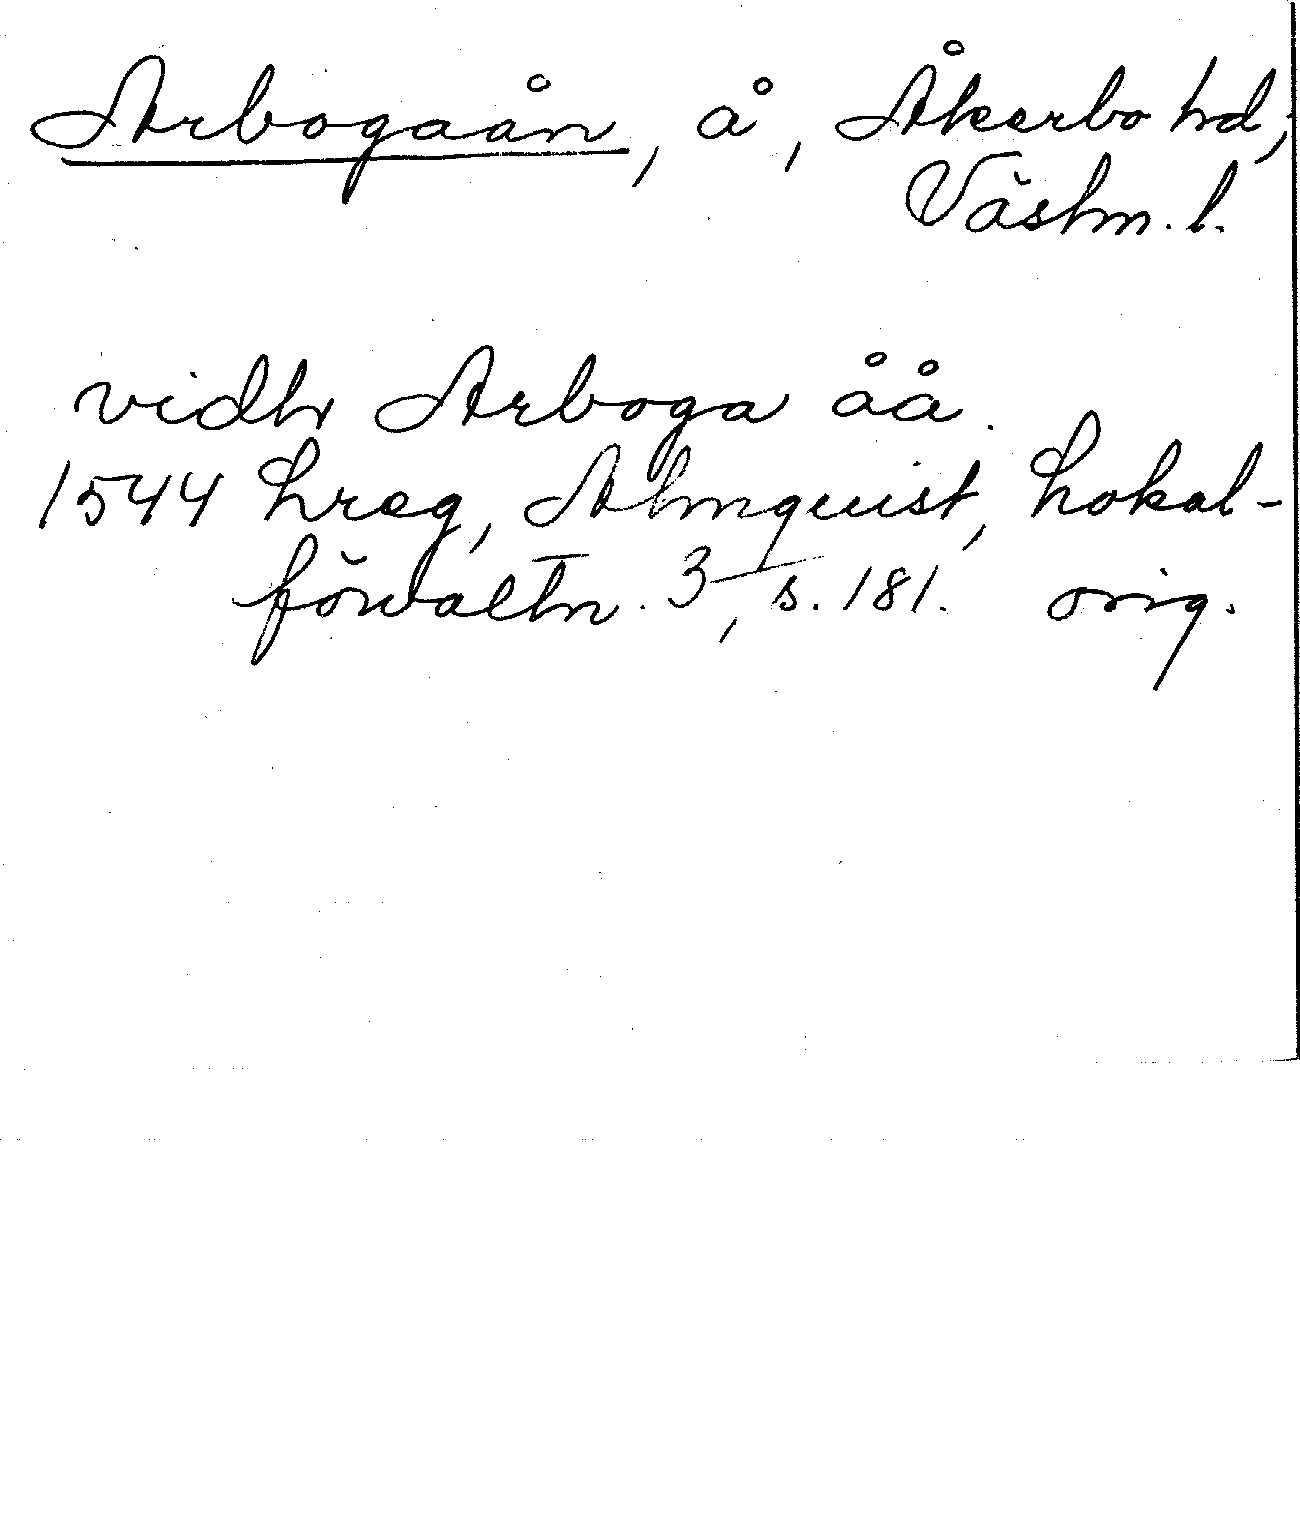 Arbogaån, å, Åkerbo hd,
Västm. l.
vidh Arboga åå.
1544 Lreg, Almquist, Lokal-
förvaltn. 3, s. 181. orig.